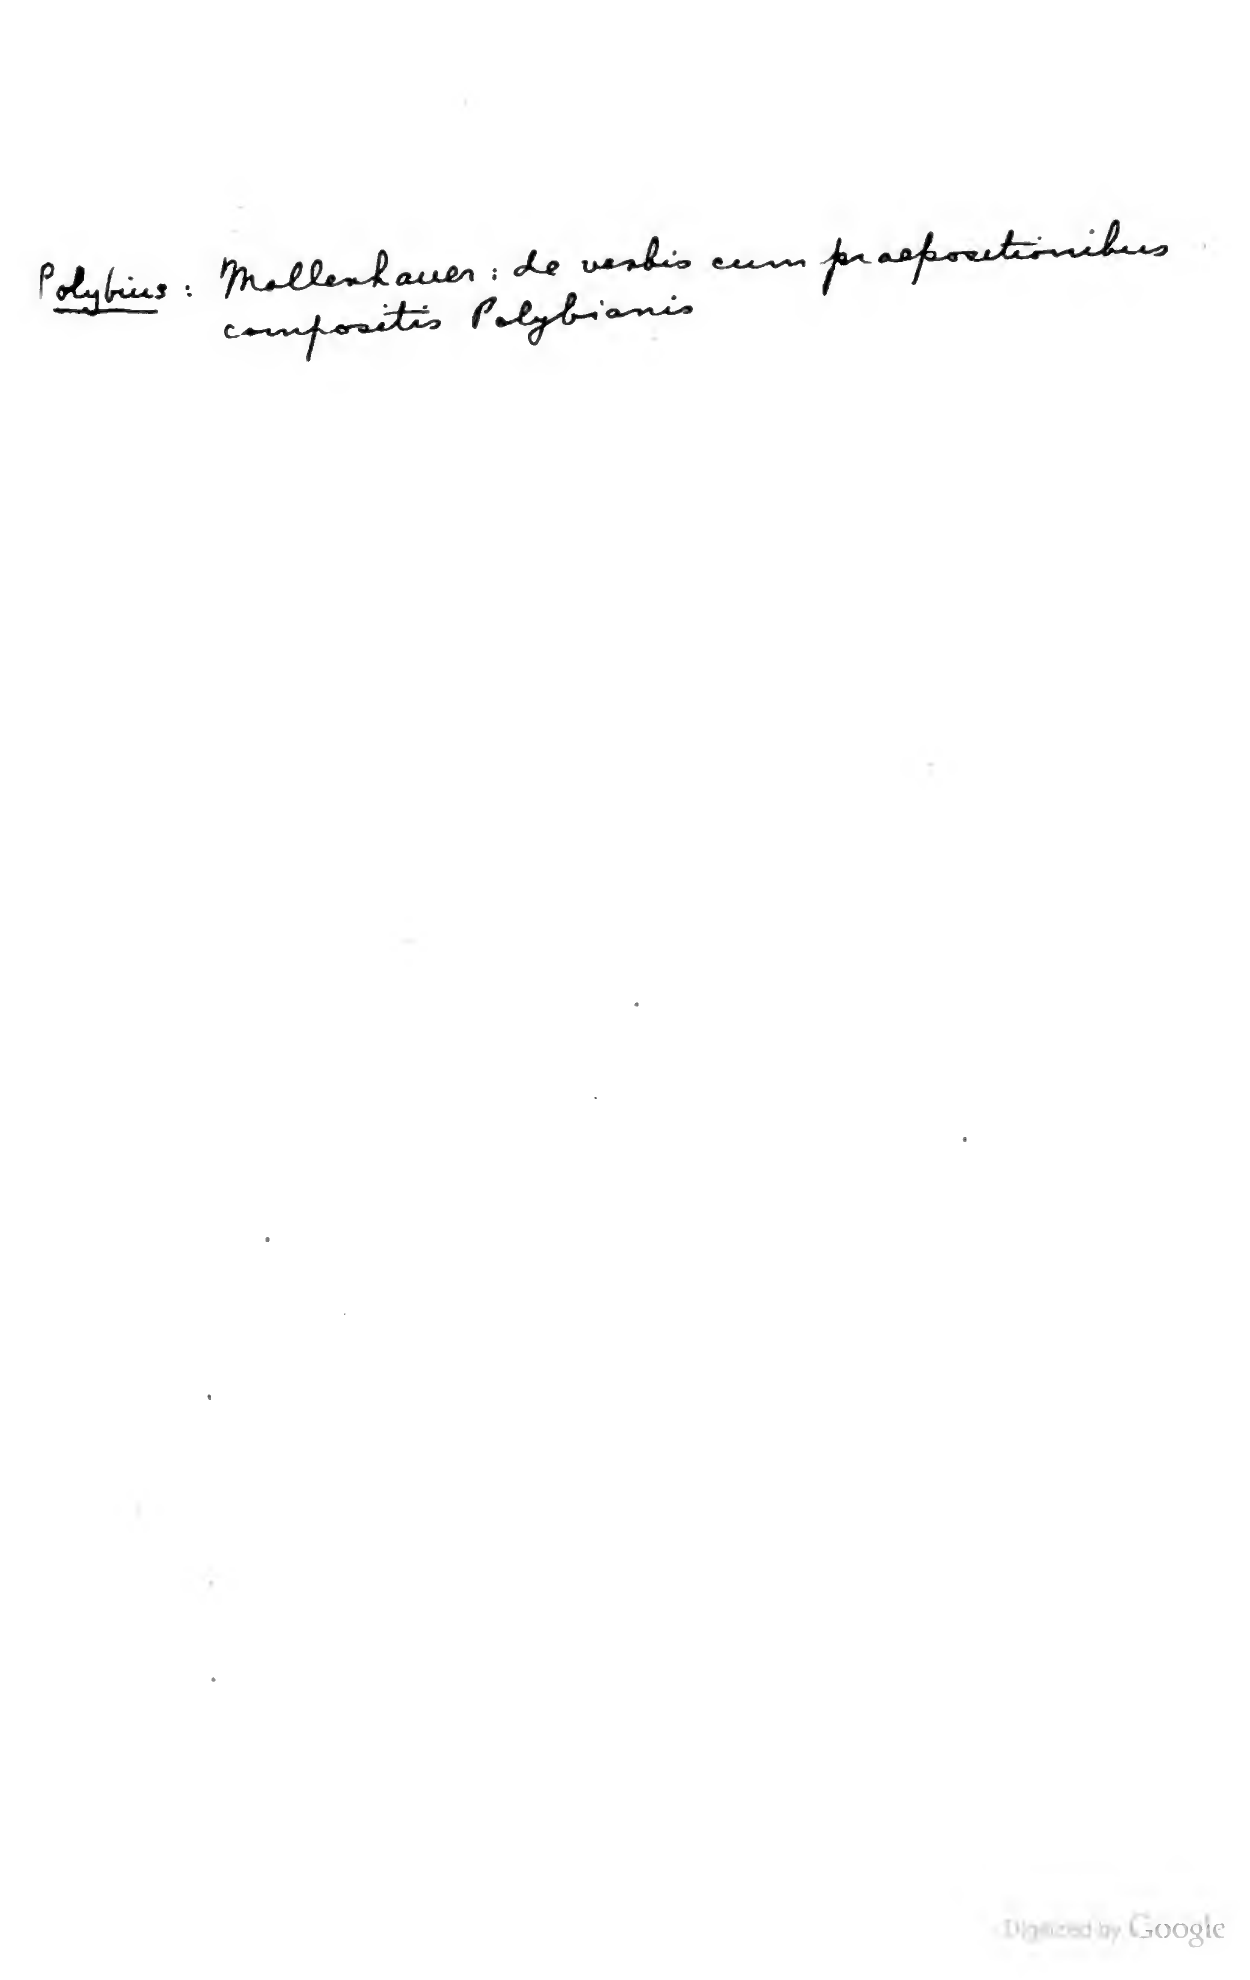 Polybius : Mollenhauer : de verbis cum praepositionibus
compositis Polybianis
Digitized by Google